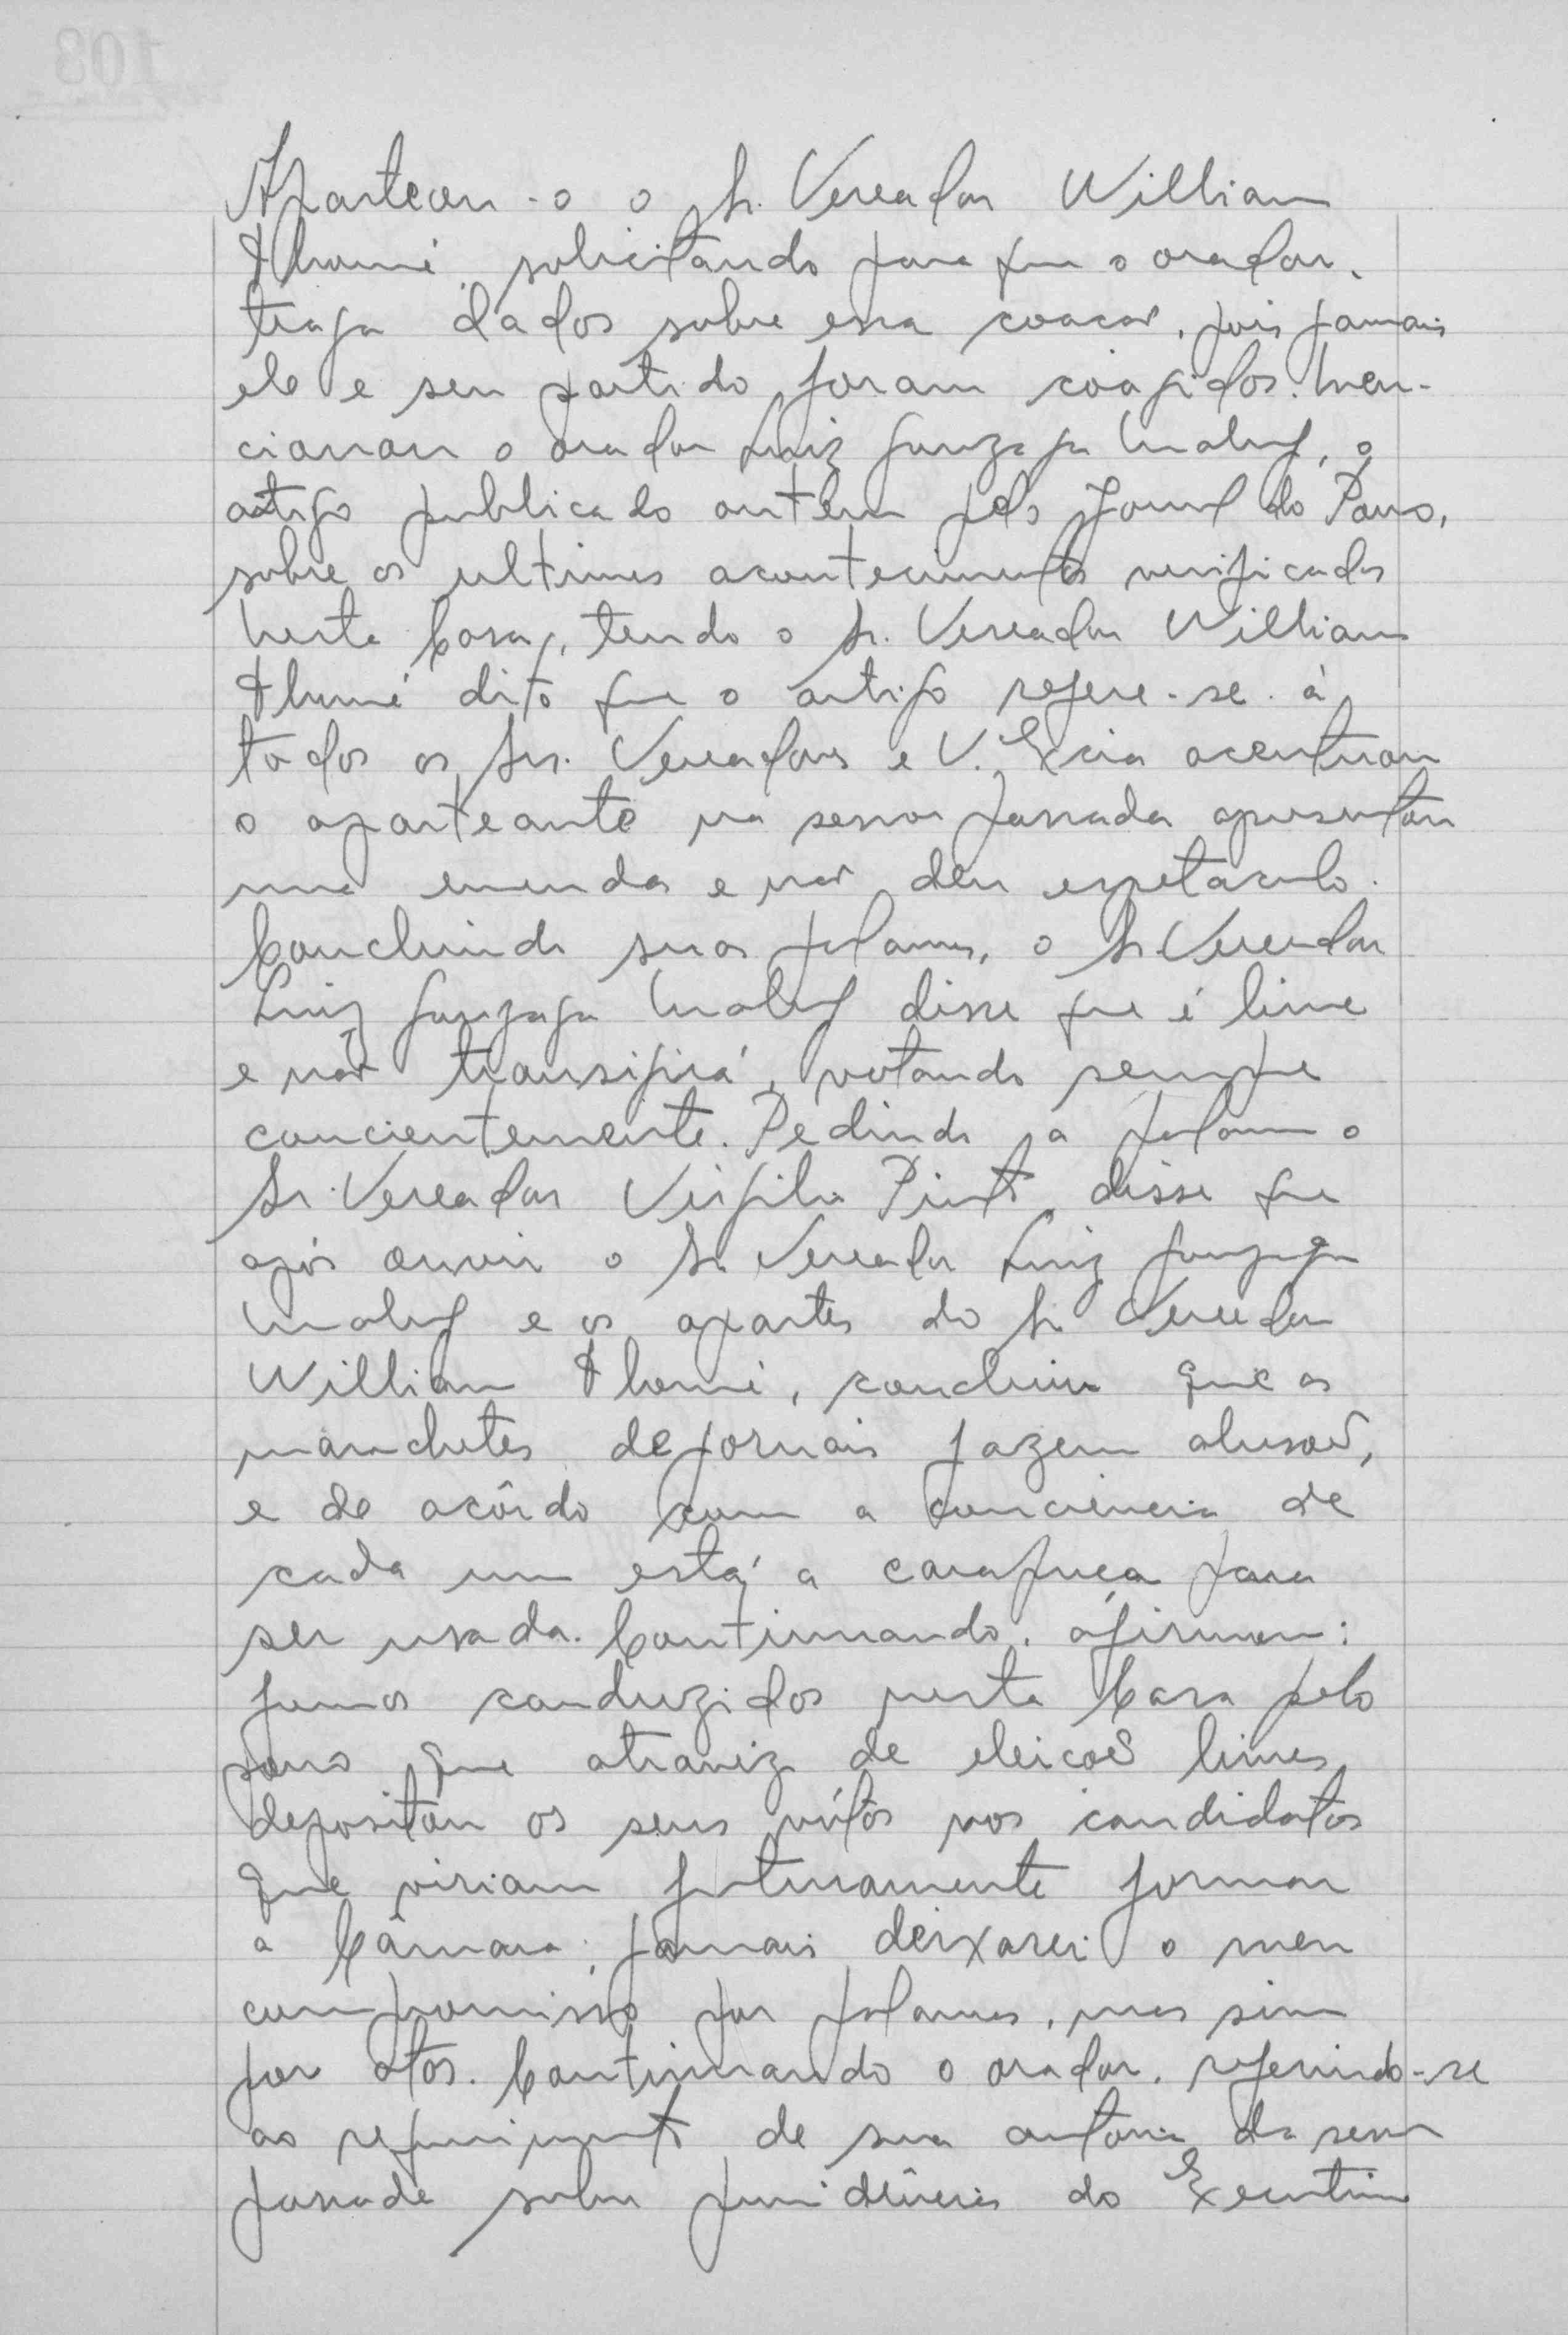 Aparteou-o o Sr. Vereador William
Thomé, solicitando para que o orador,
traga dados sobre essa coacao, pois jamais
ele e seu partido foram coagidos. Men-
cionou o orador Luiz Gonzaga Maluf, o
artigo publicado ontem pelo Jornal do Povo,
sobre os ultimos acontecimentos verificados
nesta Casa, tendo o Sr. Vereador William
Thomé dito que o artigo refere-se á
todos os Srs. Vereadores e V. Excia acentuou
o aparteante na sessão passada apresentou
uma emenda e não deu espetaculo.
Concluindo suas palavras, o Sr. Vereador
Luiz Gonzaga Maluf disse que é livre
e não transigirá, votando sempre
concientemente. Pedindo a palavra o
Sr. Vereador Virgilio Pinto, disse que
após ouvir o Sr. Vereador Luiz Gonzaga
Maluf e os apartes do Sr. Vereador
William Thomé, concluiu que as
manchetes de jornais fazem alusoes,
e de acôrdo com a conciencia de
cada um está a carapuça para
ser usada. Continuando, afirmou:
fomos conduzidos nesta Casa pelo
povo que atravez de eleicoes livres
depositou os seus vótos nos candidatos
que viriam futuramente formar
a Câmara; jamais deixarei o meu
compromisso por palavras, mas sim
por atos. Continuando o orador, referindo-se
ao requerimento de sua autoria da sessão
passada sobre providências do Executivo